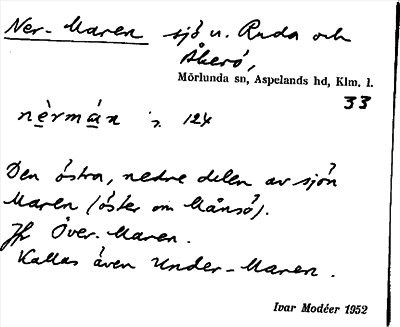 Ner-Maren sjö u. Ruda och
Åkerö,
Mörlunda sn, Aspelands hd, Klm. l.
33
nèrmán 124
Den östra, nedre delen av sjön
Maren (öster om Månsö).
Jfr Över-Maren.
Kallas även Under-Maren.
Ivar Modéer 1952